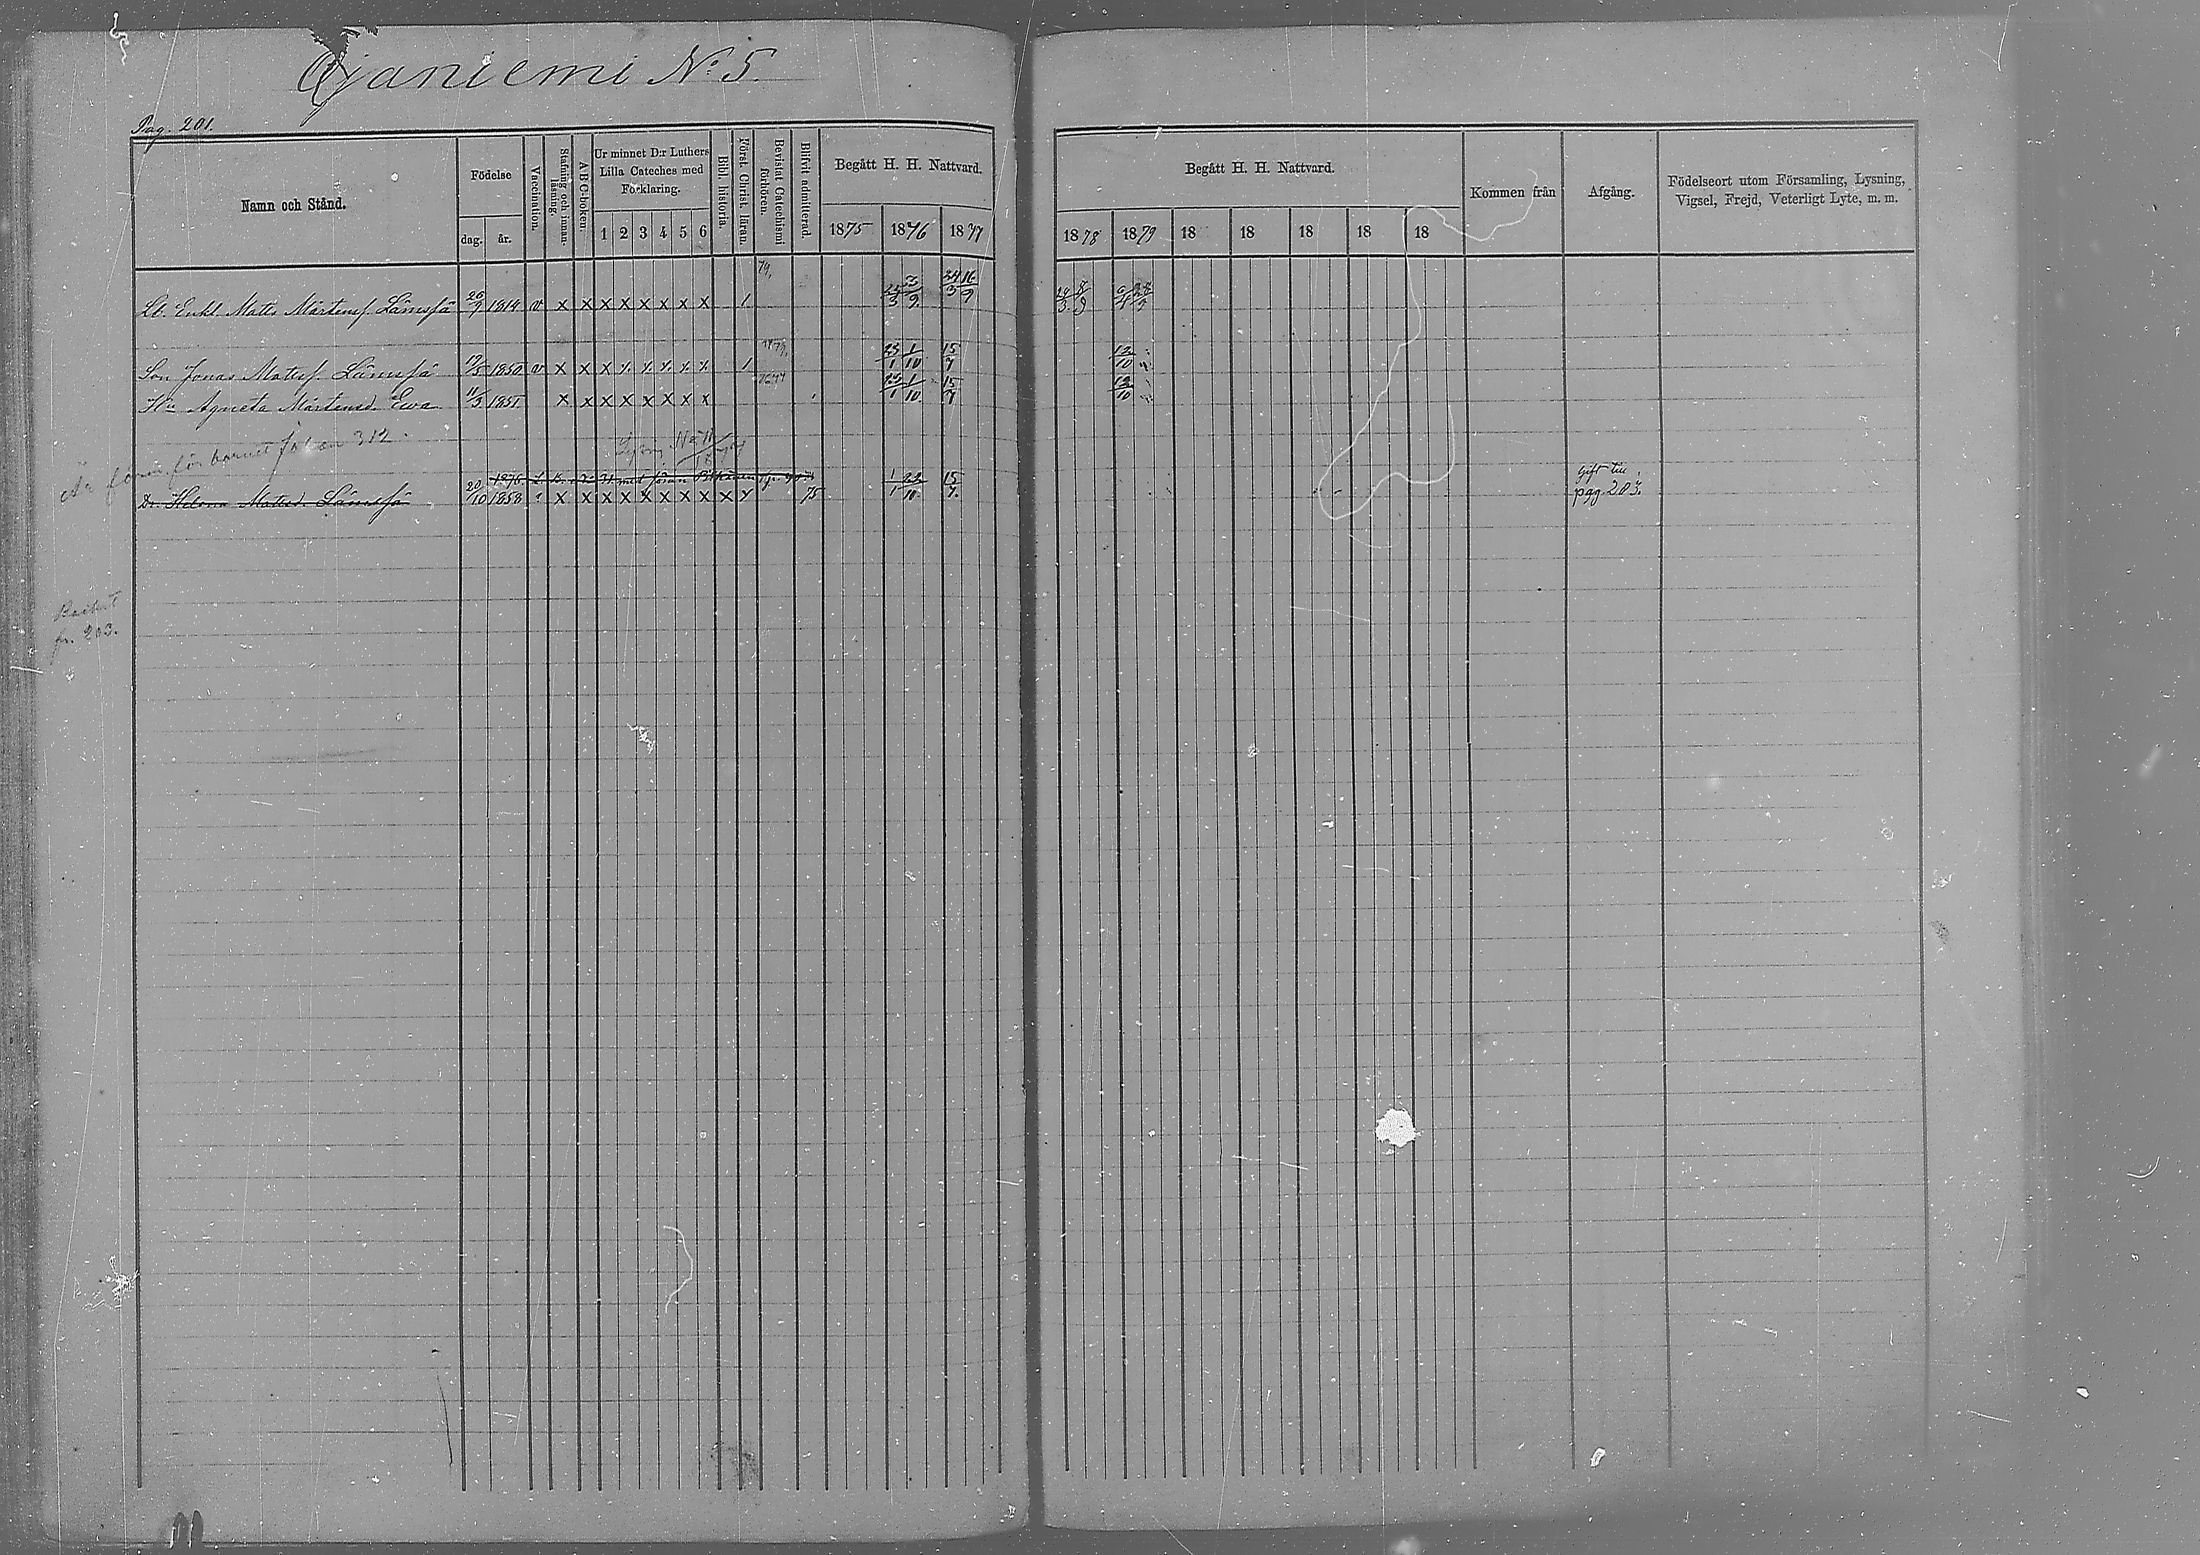 Ojaniemi No 5.
Pag. 201.
Namn och Stånd.
Födelse
dag. år.
Vaccination.
Stafning och innanläsning.
ABC-boken
Ur minnet D:r Luthers Lilla Cateches med Förklaring.
1 2 3 4 5 6
Bibl. historia.
Först. Christ. läran.
Bevistat Catechismi förhören.
Blifvit admitterad.
Begått H. H. Nattvard.
1875 1876 1877
Begått H. H. Nattvard.
1878 1879 18 18 18 18 18
Kommen från
Afgång.
Födelseort utom Församling, Lysning, Vigsel, Frejd, Veterligt Lyte, m. m.
Enkl. Matts Mårtensf. Lämsfä 26/9 1814 v x x x x x x x x 1
79,
23/3 24/3 16/9
8/9
Son Jonas Matsf. Lämsfä 12/5 1850 v x x x x x x x x 1
23/1 1/10 15/7
12/10
Hu Agneta Mårtensd. Ewa 11/3 1851 x x x x x x x x
1/10 15/7
12/10
för barnet Johan 312.
Dr. Helena Matsd. Lämsfä 20/10 1858 x x x x x x x x x 75
1/1 22/10 15/7
Gift till
pag. 203.
fr. 203.